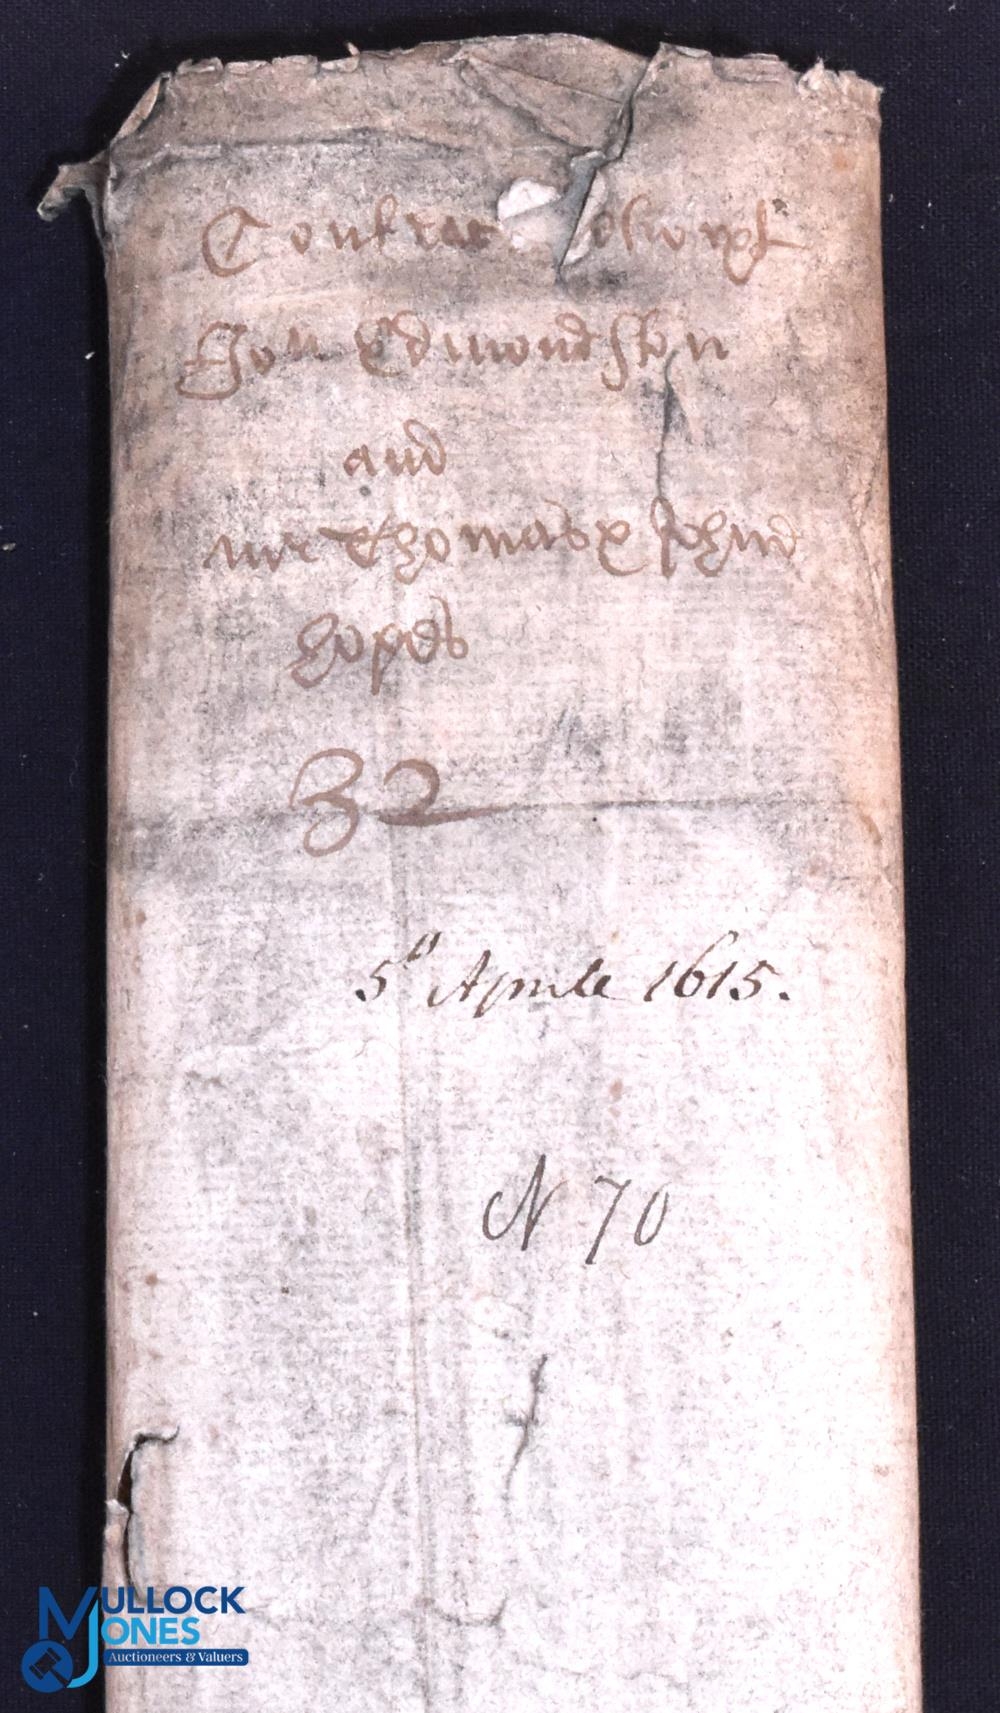 Contrac
Jon Edmondston
and
mr Thomas
hopes
32
5" Aprile 1615.
N 70
MULLOCK
JONES
Auctioneers & Valuers